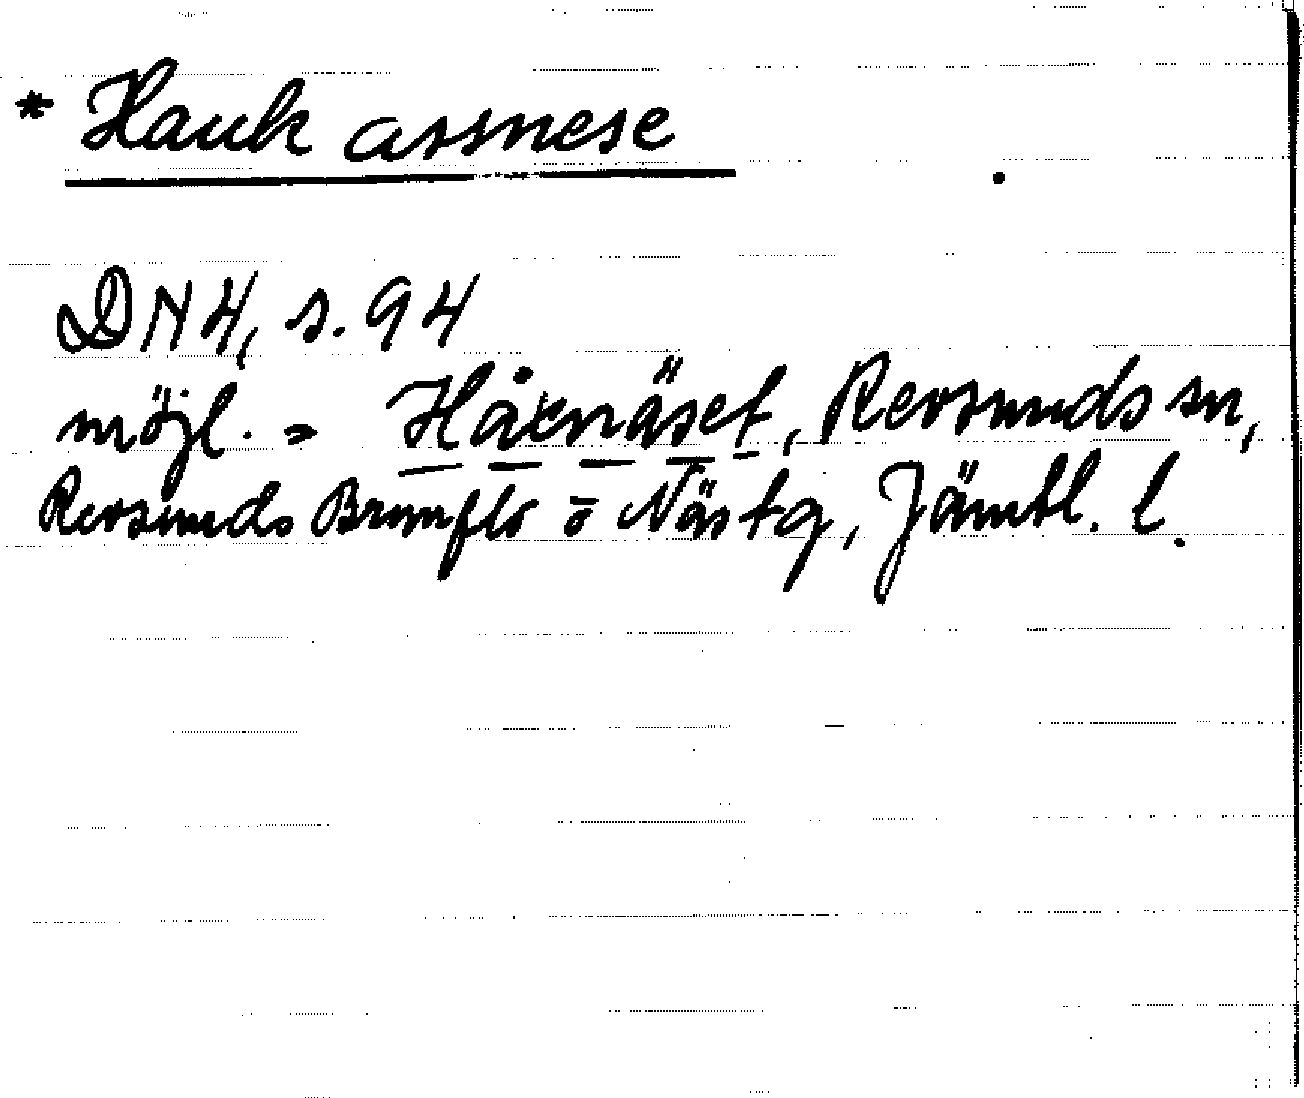 * Hauk assnese
DN 4, s. 94
möjl. = Håxnäset, Revsunds sn,
Revsunds Brunflo o Näs tg, Jämtl. l.